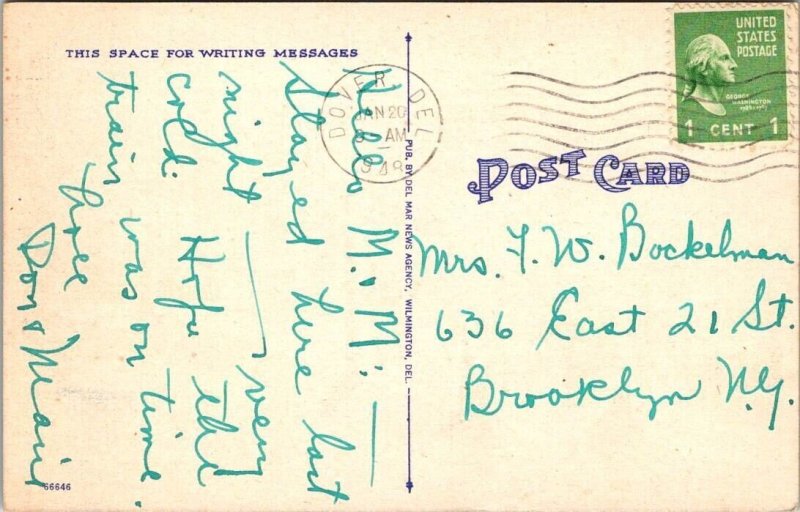 THIS SPACE FOR WRITING MESSAGES
Hello M. M. —
Stayed here last
night — very
cold. Hope the
train was on time.
Love
Don & Marie
66646
PUB. BY DEL MAR NEWS AGENCY, WILMINGTON, DEL.
DOVER DEL
JAN 20
AM
1948
UNITED
STATES
POSTAGE
GEORGE
WASHINGTON
1 CENT 1
POST CARD
Mrs. F. W. Bockelman
636 East 21 St.
Brooklyn N.Y.